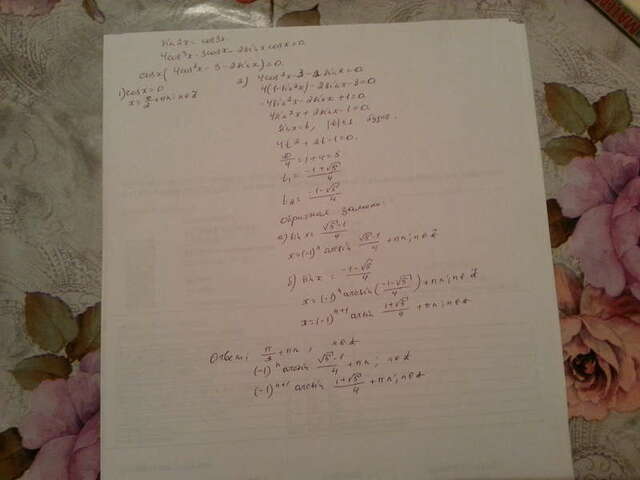 sin2x = cos3x
4cos³x - 3cosx - 2sinx cosx = 0
cosx(4cos²x - 3 - 2sinx) = 0
1) cosx = 0
x = π/2 + πn; n ∈ Z
2) 4cos²x - 3 - 2sinx = 0
4(1 - sin²x) - 2sinx - 3 = 0
-4sin²x - 2sinx + 1 = 0
4sin²x + 2sinx - 1 = 0
sinx = t, |t| ≤ 1
4t² + 2t - 1 = 0.
D/4 = 1 + 4 = 5
t₁ = (-1+√5)/4
t₂ = (-1-√5)/4
Обратная замена:
а) sinx = (√5-1)/4
x = (-1)ⁿ arcsin (√5-1)/4 + πn; n ∈ Z
б) sinx = (-1-√5)/4
x = (-1)ⁿ arcsin((-1-√5)/4) + πn; n ∈ Z
x = (-1)ⁿ⁺¹ arcsin (1+√5)/4 + πn; n ∈ Z
Ответ: π/2 + πn, n ∈ Z
(-1)ⁿ arcsin (√5-1)/4 + πn; n ∈ Z
(-1)ⁿ⁺¹ arcsin (1+√5)/4 + πn; n ∈ Z